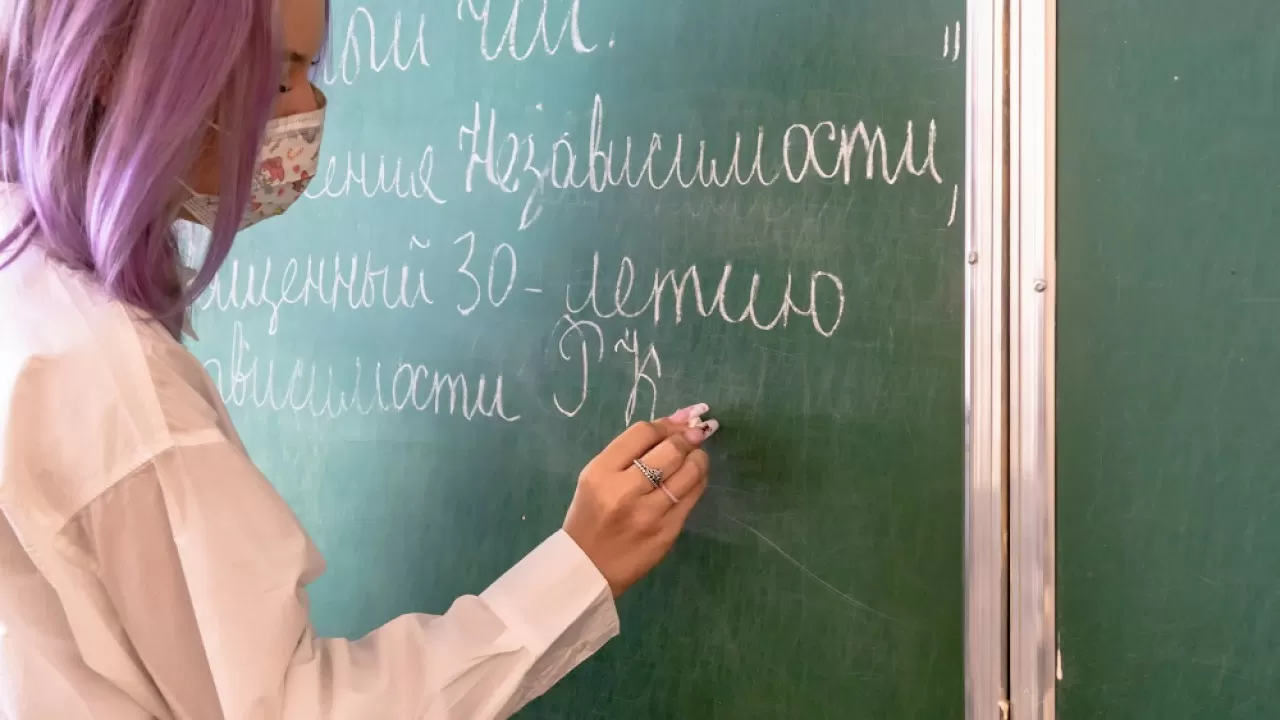 ный час.
"
ения Независимости,
ященный 30-летию
ависимости РК